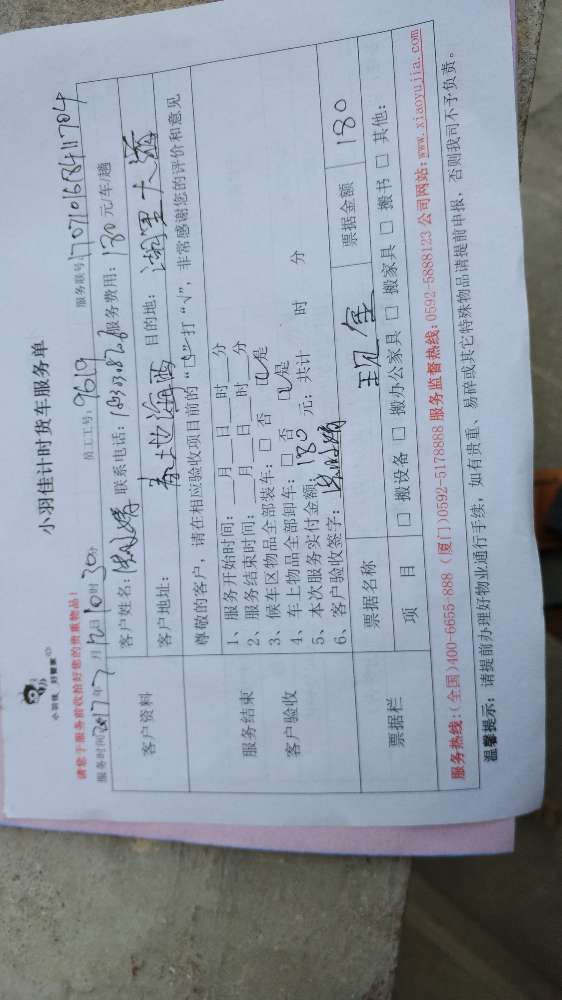 小羽佳 好管家
小羽佳计时货车服务单
请您于服务前收拾好您的贵重物品！
服务时间2017年7月12日10时30分 员工工号：9619 服务联号：
客户资料
客户姓名： 联系电话： 服务费用：180元/车/趟
客户地址： 目的地：
服务结束
客户验收
尊敬的客户，请在相应验收项目前的“□”打“√”，非常感谢您的评价和意见
1、服务开始时间：___月___日___时___分
2、服务结束时间：___月___日___时___分
3、候车区物品全部装车：□ 否 ☑是
4、车上物品全部卸车：□ 否 ☑是
5、本次服务实付金额：180 元；共计 时 分
6、客户验收签字：
票据栏
票据名称 现金 票据金额 180
项 目 □ 搬设备 □ 搬办公家具 □ 搬家具 □ 搬书 □ 其他:
服务热线：(全国)400-6655-888 (厦门)0592-5178888 服务监督热线：0592-5888123 公司网站：www.xiaoyujia.com
温馨提示：请提前办理好物业通行手续，如有贵重、易碎或其它特殊物品请提前申报，否则我司不予负责。